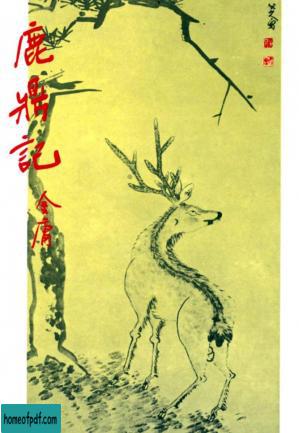 鹿鼎記
金庸
homeofpdf.com